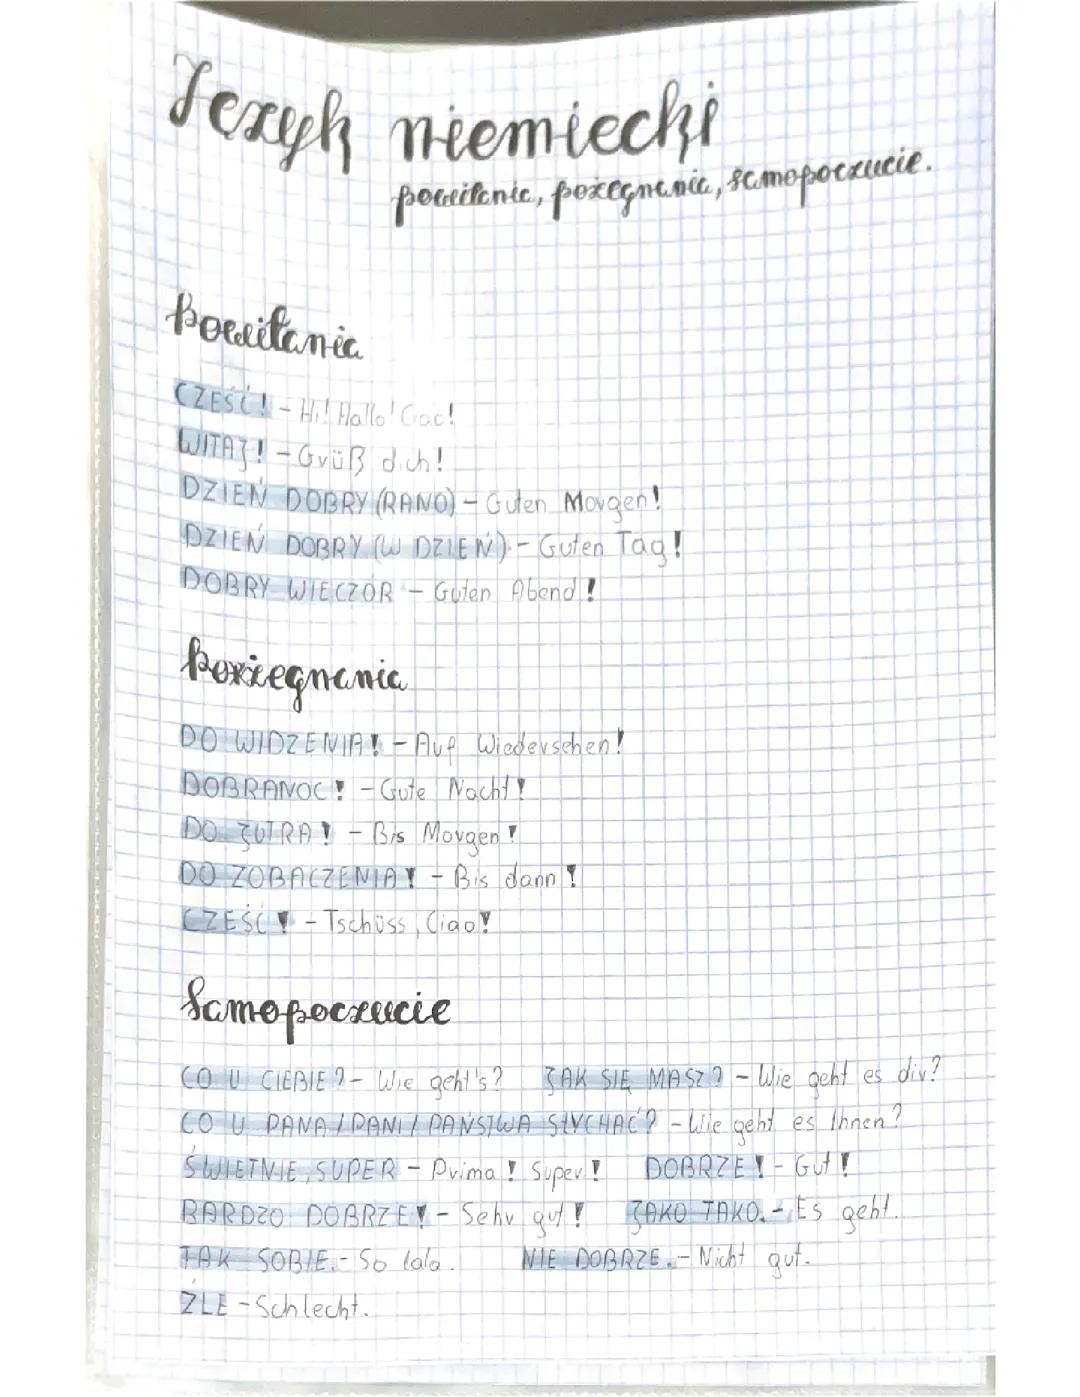 Język niemiecki
powitanie, pożegnanie, samopoczucie.
Powitania
CZEŚĆ! - Hi! Hallo! Ciao!
WITAJ! - Grüß dich!
DZIEŃ DOBRY (RANO) - Guten Morgen!
DZIEŃ DOBRY (W DZIEŃ) - Guten Tag!
DOBRY WIECZÓR - Guten Abend!
Pożegnania
DO WIDZENIA! - Auf Wiedersehen!
DOBRANOC! - Gute Nacht!
DO JUTRA! - Bis Morgen!
DO ZOBACZENIA! - Bis dann!
CZEŚĆ! - Tschüss, Ciao!
Samopoczucie
CO U CIEBIE? - Wie geht's? JAK SIĘ MASZ? - Wie geht es dir?
CO U PANA / PANI / PAŃSTWA SŁYCHAĆ? - Wie geht es Ihnen?
ŚWIETNIE, SUPER - Prima! Super! DOBRZE! - Gut!
BARDZO DOBRZE! - Sehr gut! JAKO TAKO. - Es geht.
TAK SOBIE. - So lala. NIE DOBRZE. - Nicht gut.
ŹLE - Schlecht.